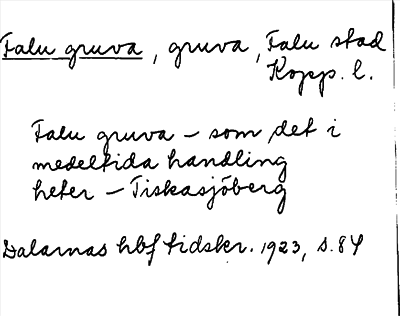 Falu gruva, gruva, Falu stad
Kopp. l.
Falu gruva – som det i
medeltida handling
heter – Tiskasjöberg
Dalarnas hbf tidskr. 1923, s. 84